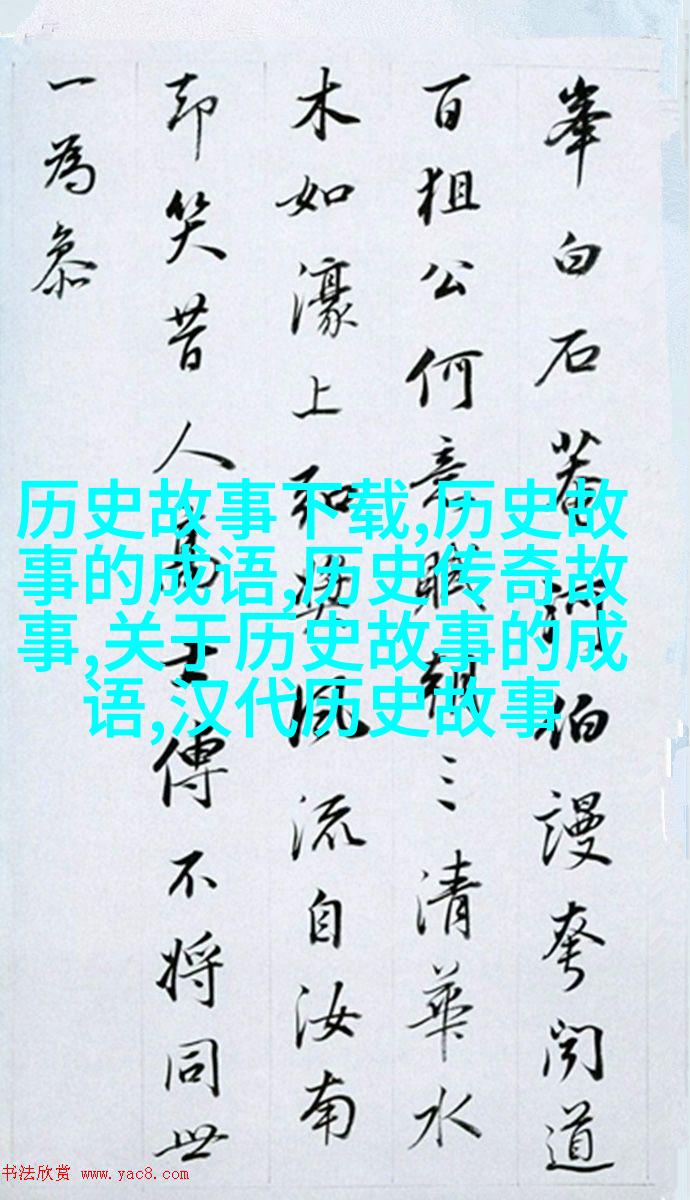 峯白石河伯謾夸闻道
百狙公何意賦朝三清華水
木如濠上和奨風流自汝南
却笑昔人高士傳不将同世
一為
历史故事下载,历史故
事的成语,历史传奇故
事,关于历史故事的成
语,汉代历史故事
书法欣赏 www.yac8.com